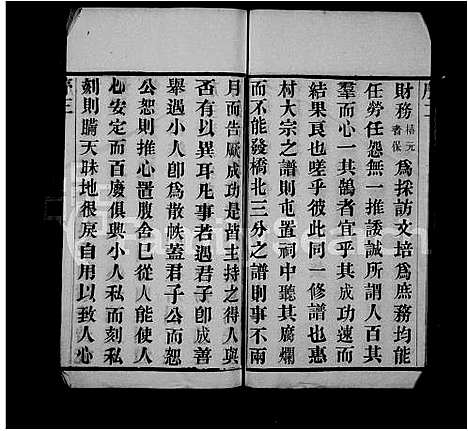 序二
財務 榙元 者保 爲採訪文培爲庶務均能
任勞任怨無一推諉誠所謂人百其
羣而心一其鵠者宜乎其成功速而
結果良也嗟乎彼此同一修譜也惠
村大宗之譜則屯置祠中聽其腐爛
而不能發橋北三分之譜則事不兩
月而告厥成功是皆主持之得人與
否有以異耳凡事若遇君子卽成善
舉遇小人卽爲散帙蓋君子公而恕
公恕則推心置腹舍已從人能使人
心安定而百廢俱興小人私而刻私
刻則瞞天昧地很戾自用以致人心
序三
FamilySearch